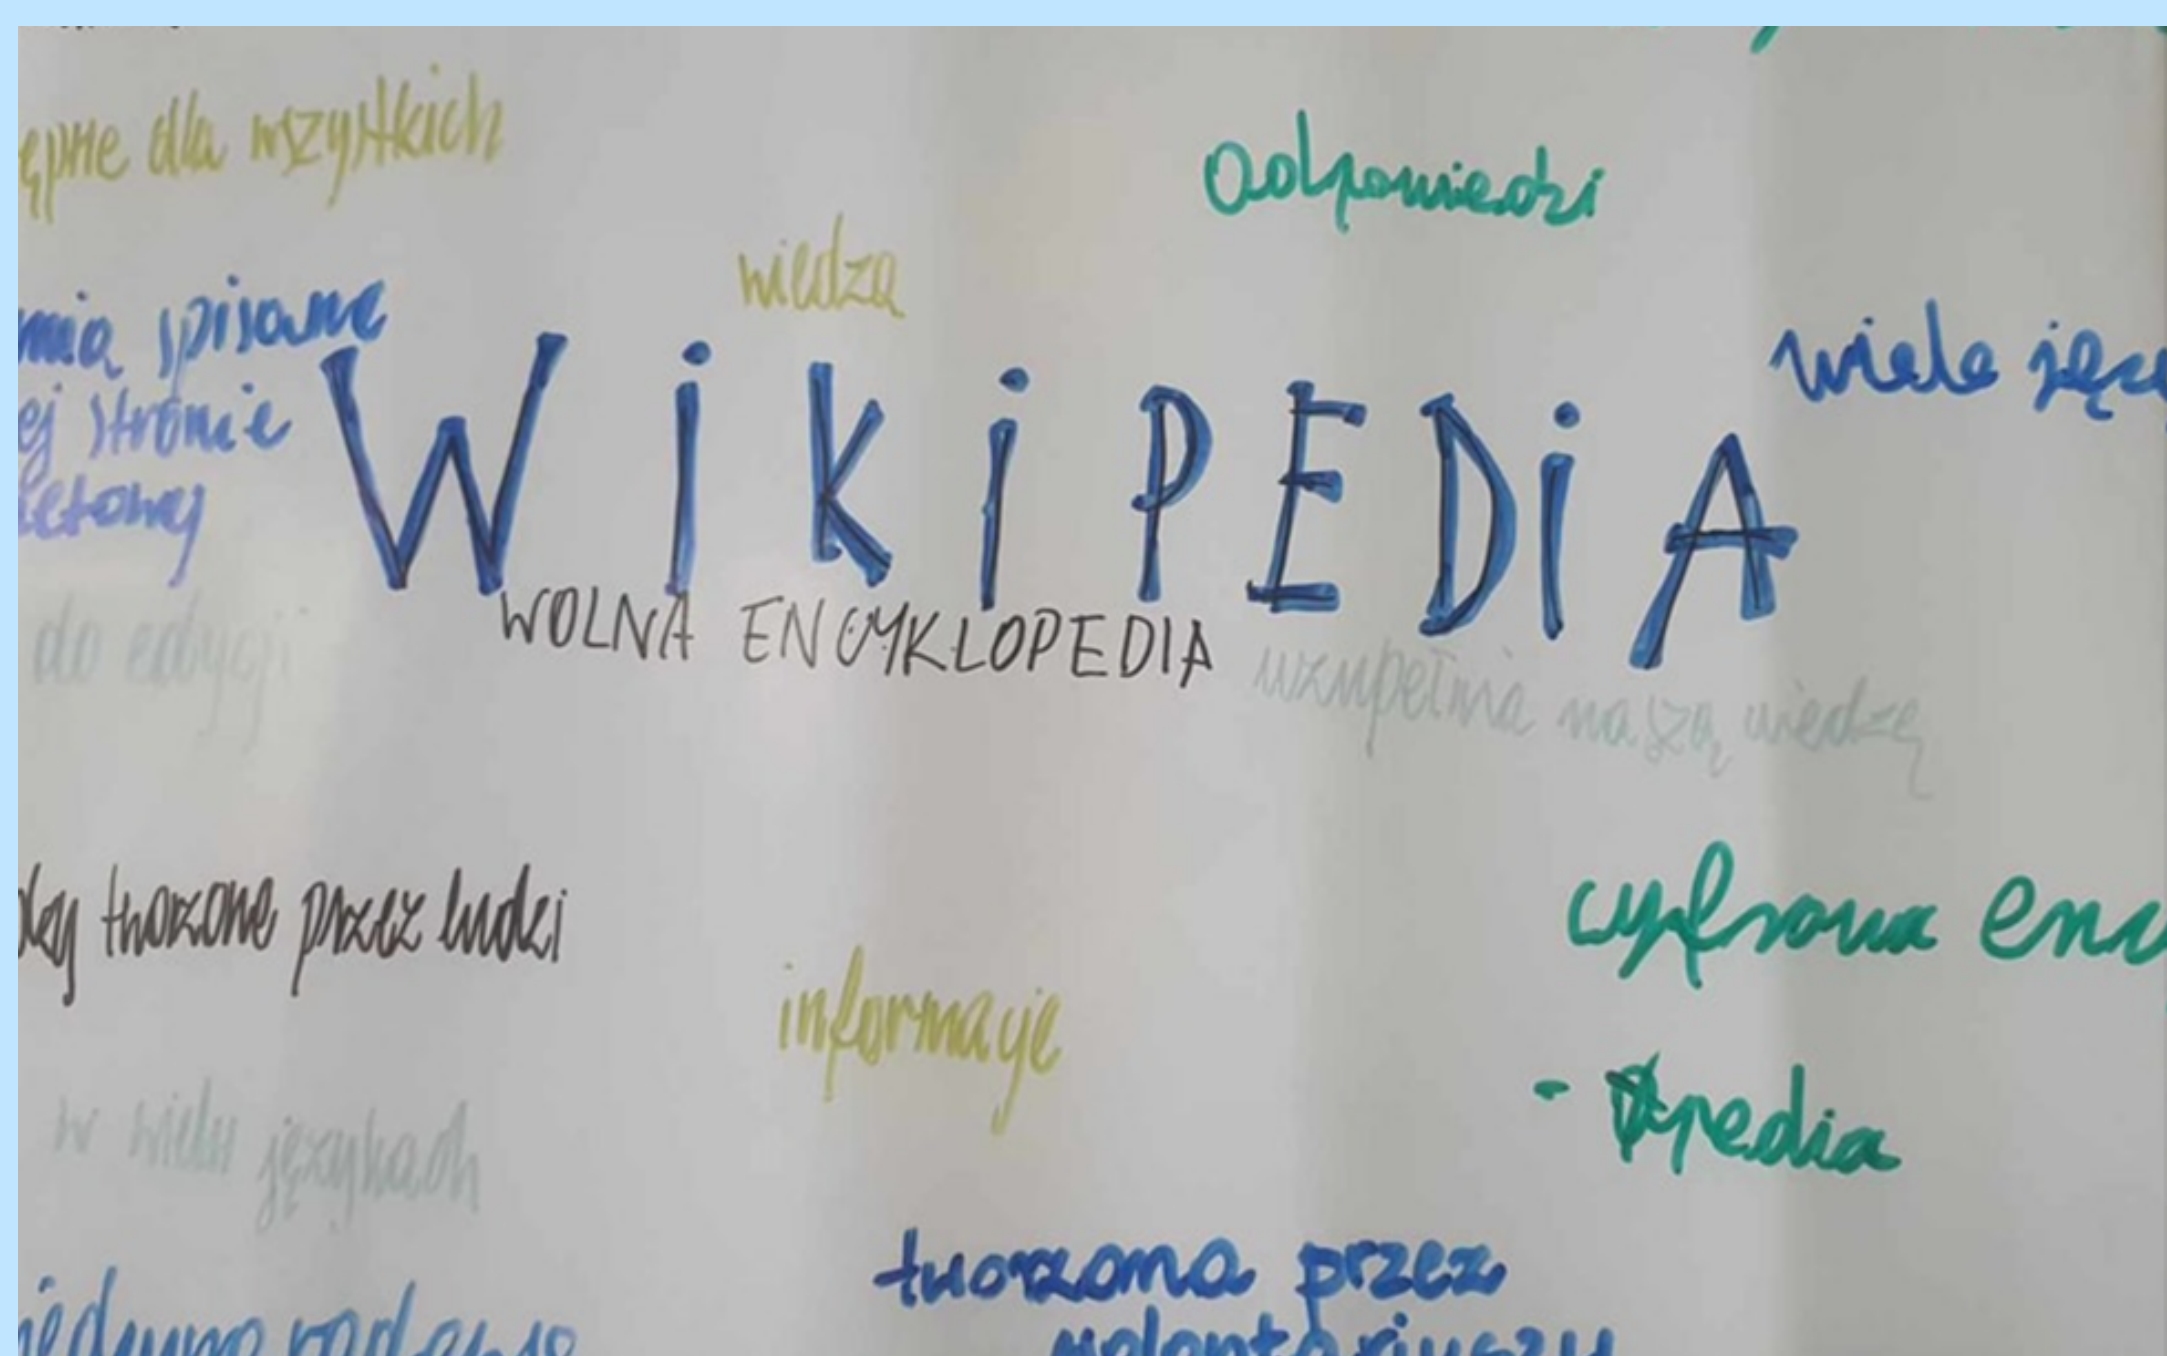 dla wszystkich
Odpowiedzi
wiedza
spisane
stronie
wiele
WiKiPEDiA
WOLNA ENCYKLOPEDIA
do edycji
uzupełnia naszą wiedzę
tworzone przez ludzi
cyfrowa
informacje
- pedia
w wielu językach
tworzona przez
wolontariuszy